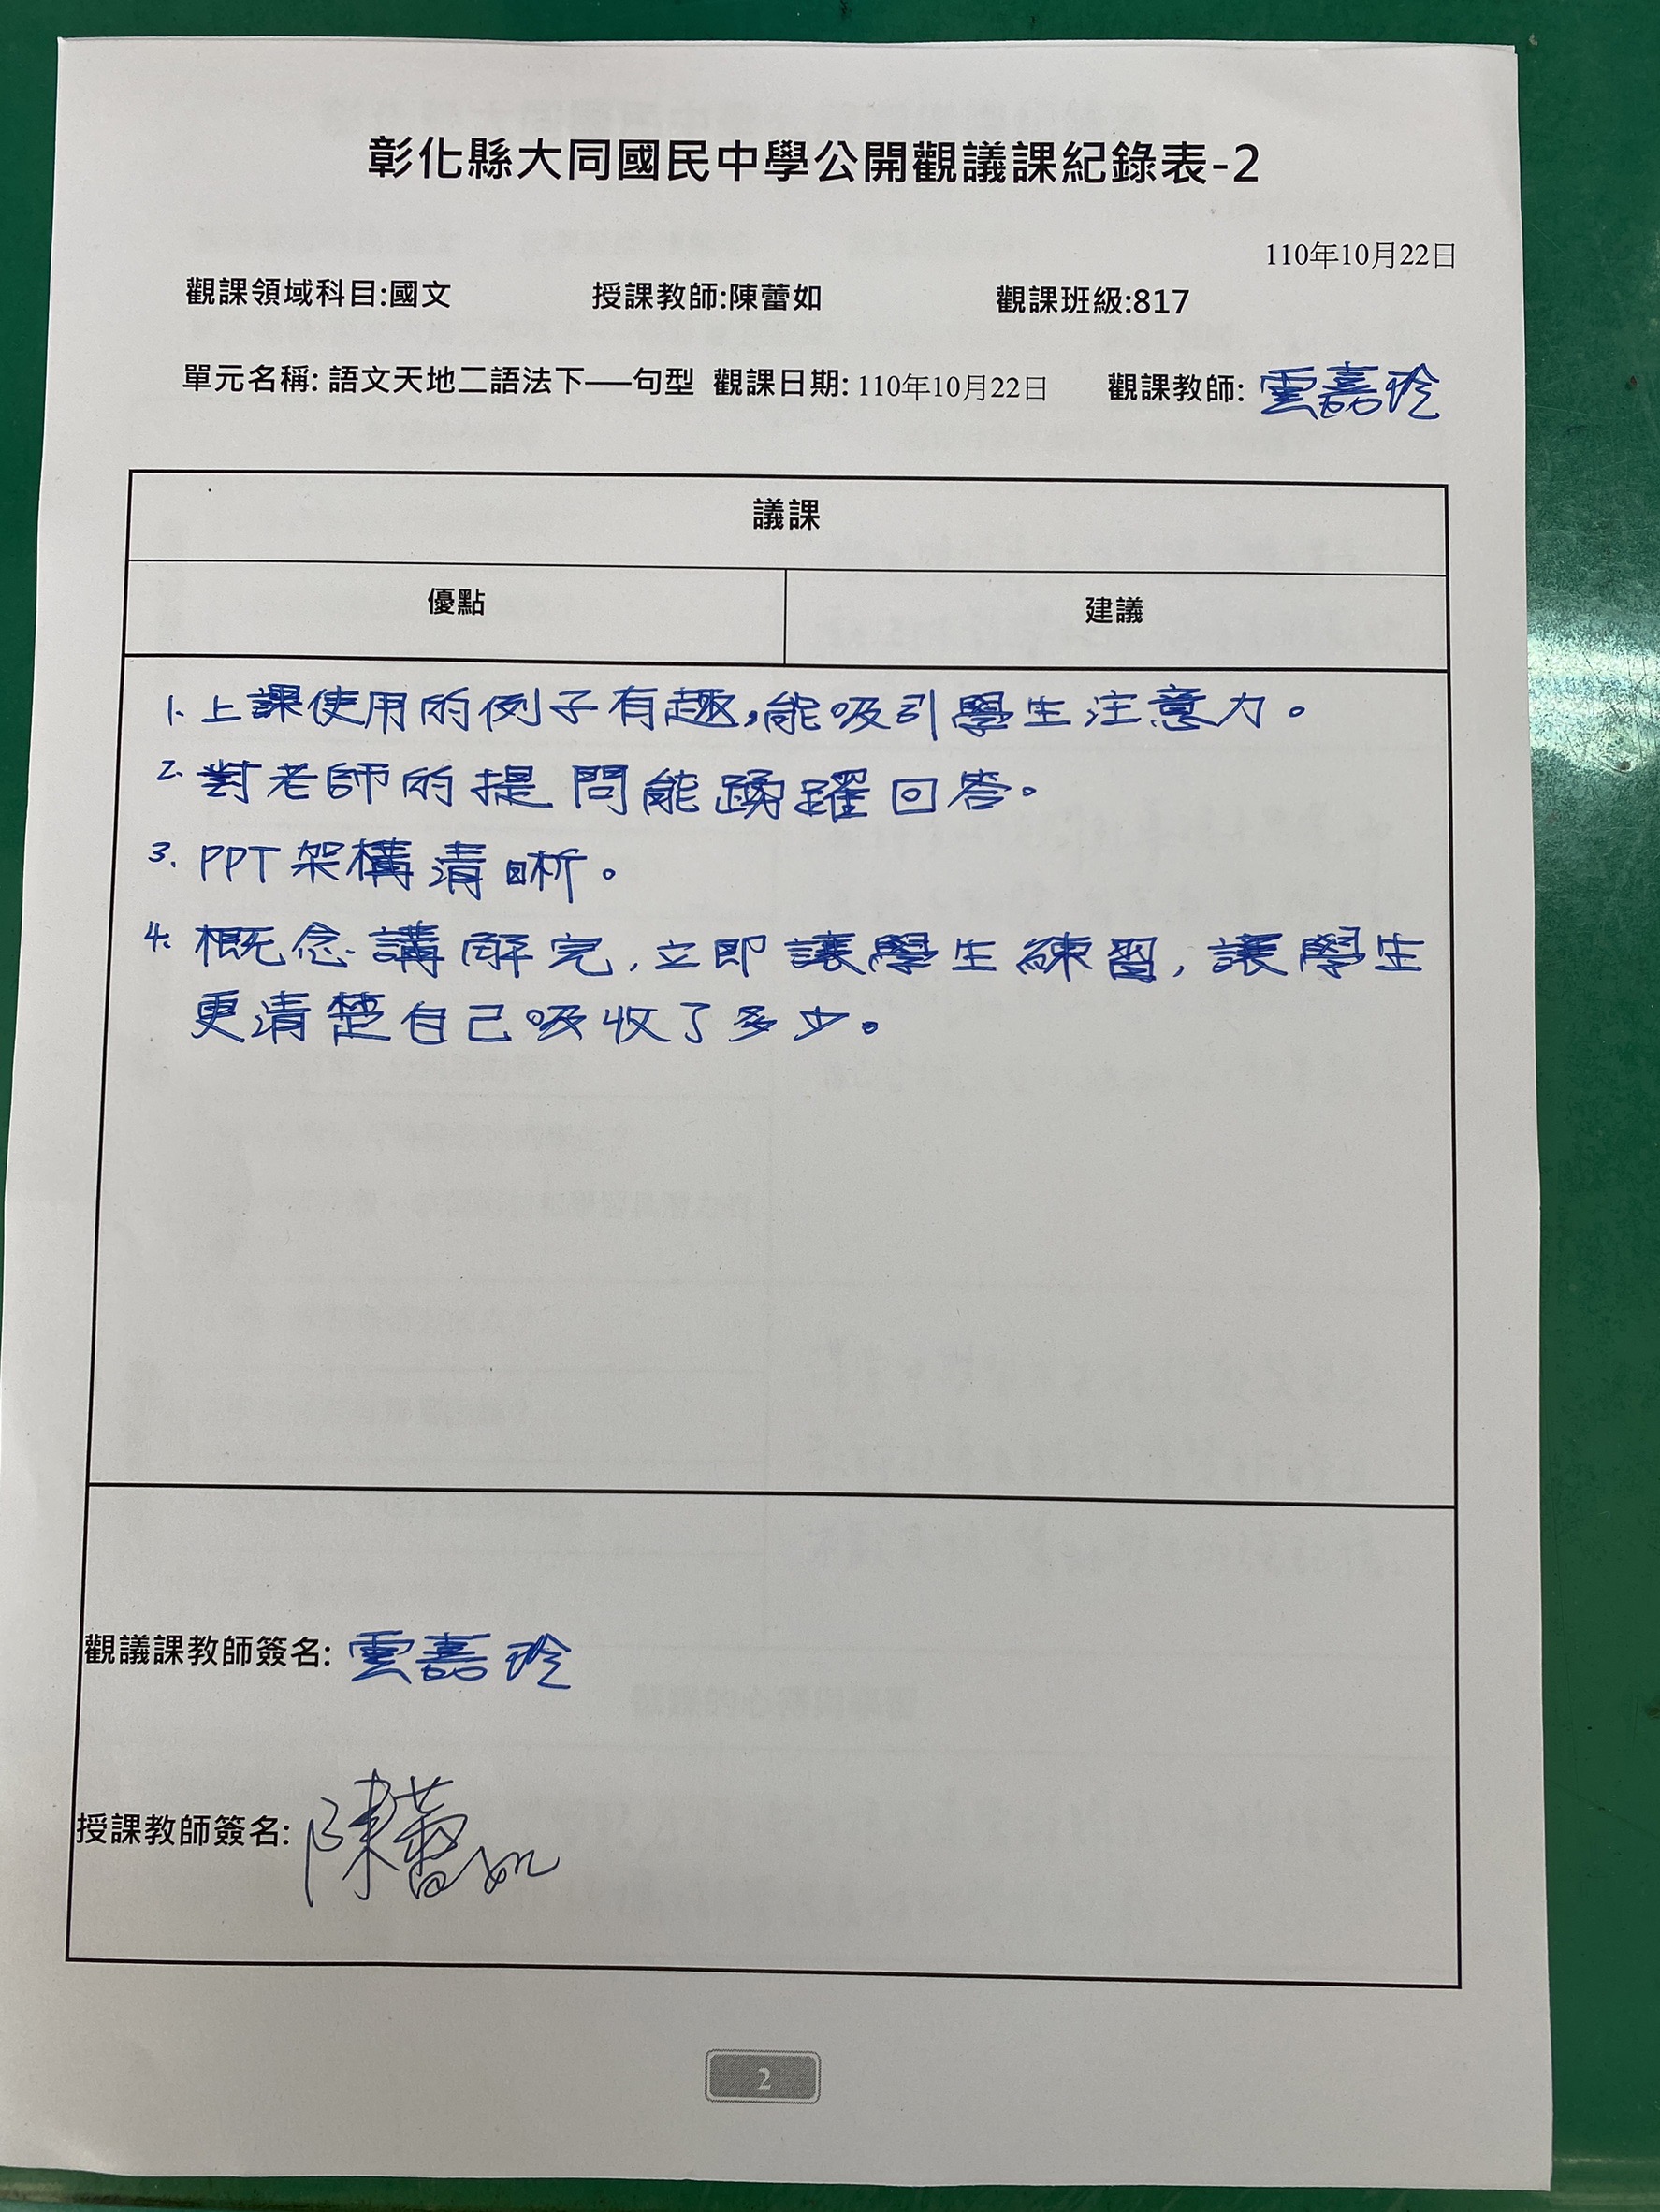 彰化縣大同國民中學公開觀議課紀錄表-2
110年10月22日
觀課領域科目:國文 授課教師:陳蕾如 觀課班級:817
單元名稱: 語文天地二語法下——句型 觀課日期: 110年10月22日 觀課教師: 雲嘉玲
議課
優點 建議
1. 上課使用的例子有趣,能吸引學生注意力。
2. 對老師的提問能踴躍回答。
3. PPT架構清晰。
4. 概念講解完,立即讓學生練習,讓學生
更清楚自己吸收了多少。
觀議課教師簽名: 雲嘉玲
授課教師簽名: 陳蕾如
2